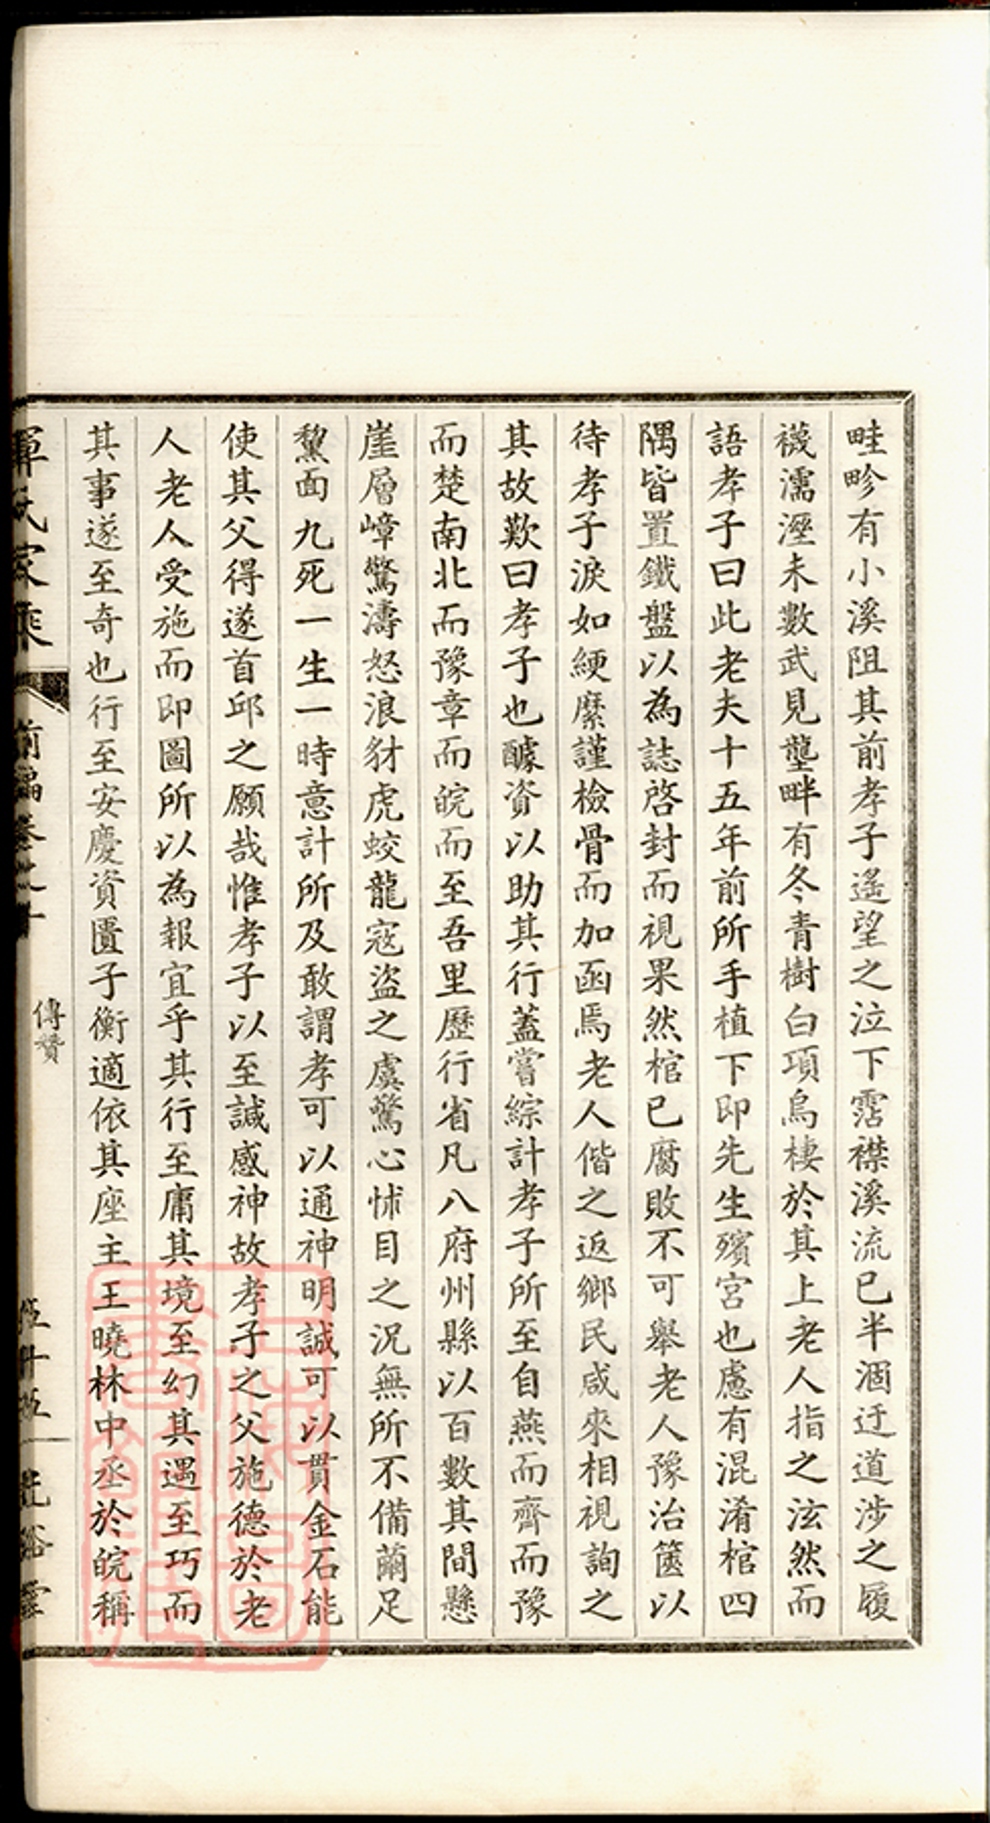 畦畛有小溪阻其前孝子遙望之泣下霑襟溪流已半涸迂道涉之履
襪濡溼未數武見壟畔有冬青樹白項烏棲於其上老人指之泫然而
語孝子曰此老夫十五年前所手植下即先生殯宮也慮有混淆棺四
隅皆置鐵盤以為誌啓封而視果然棺已腐敗不可舉老人豫治篋以
待孝子淚如綆縻謹檢骨而加函焉老人偕之返鄉民咸來相視詢之
其故歎曰孝子也醵資以助其行蓋嘗綜計孝子所至自燕而齊而豫
而楚南北而豫章而皖而至吾里歷行省凡八府州縣以百數其間懸
崖層嶂驚濤怒浪豺虎蛟龍寇盜之虞驚心怵目之況無所不備繭足
黧面九死一生一時意計所及敢謂孝可以通神明誠可以貫金石能
使其父得遂首邱之願哉惟孝子以至諴感神故孝子之父施德於老
人老人受施而即圖所以為報宜乎其行至庸其境至幻其遇至巧而
其事遂至奇也行至安慶資匱子衡適依其座主王曉林中丞於皖稱
惲氏家乘 前編卷 傳贊 光裕堂